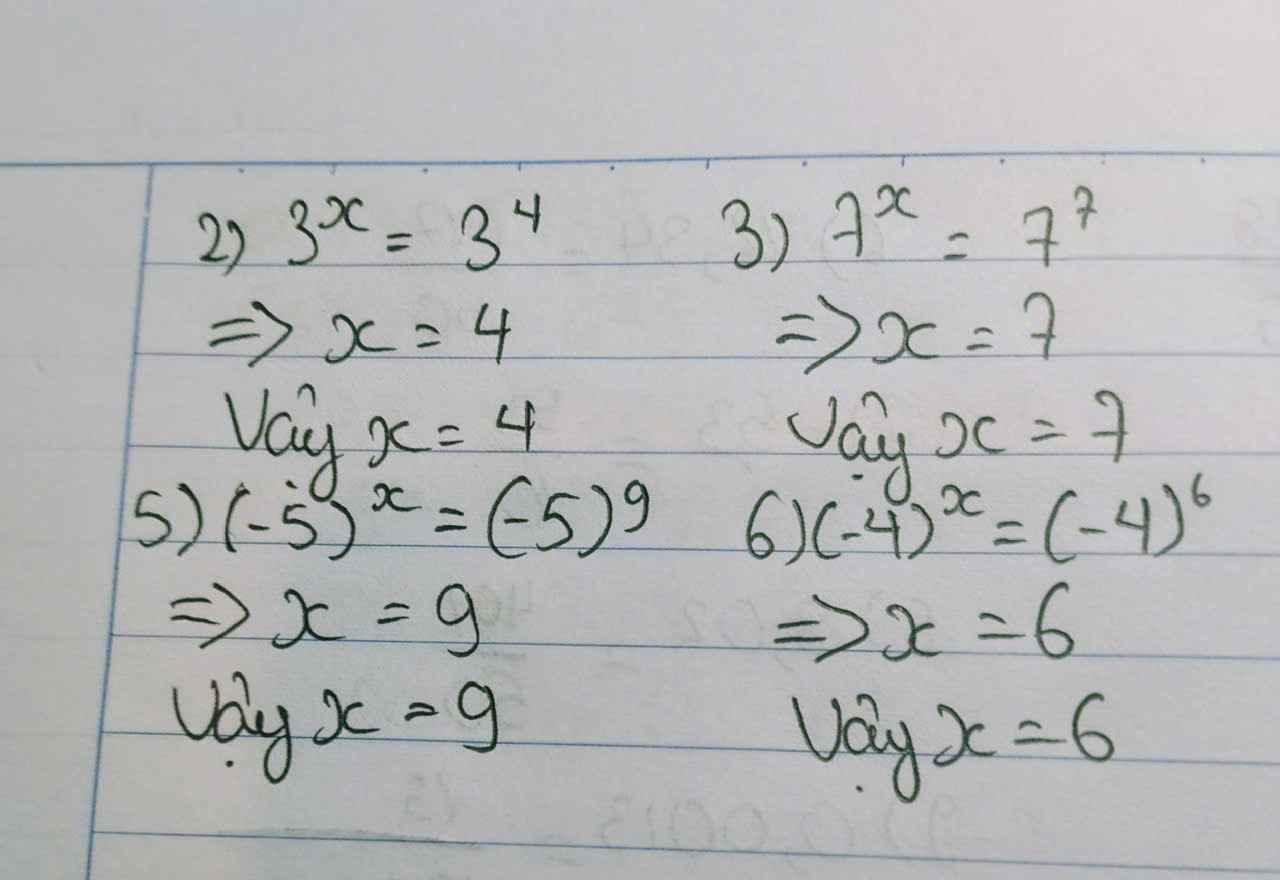 2) 3^x = 3^4
=> x = 4
Vậy x = 4
3) 7^x = 7^7
=> x = 7
Vậy x = 7
5) (-5)^x = (-5)^9
=> x = 9
Vậy x = 9
6) (-4)^x = (-4)^6
=> x = 6
Vậy x = 6